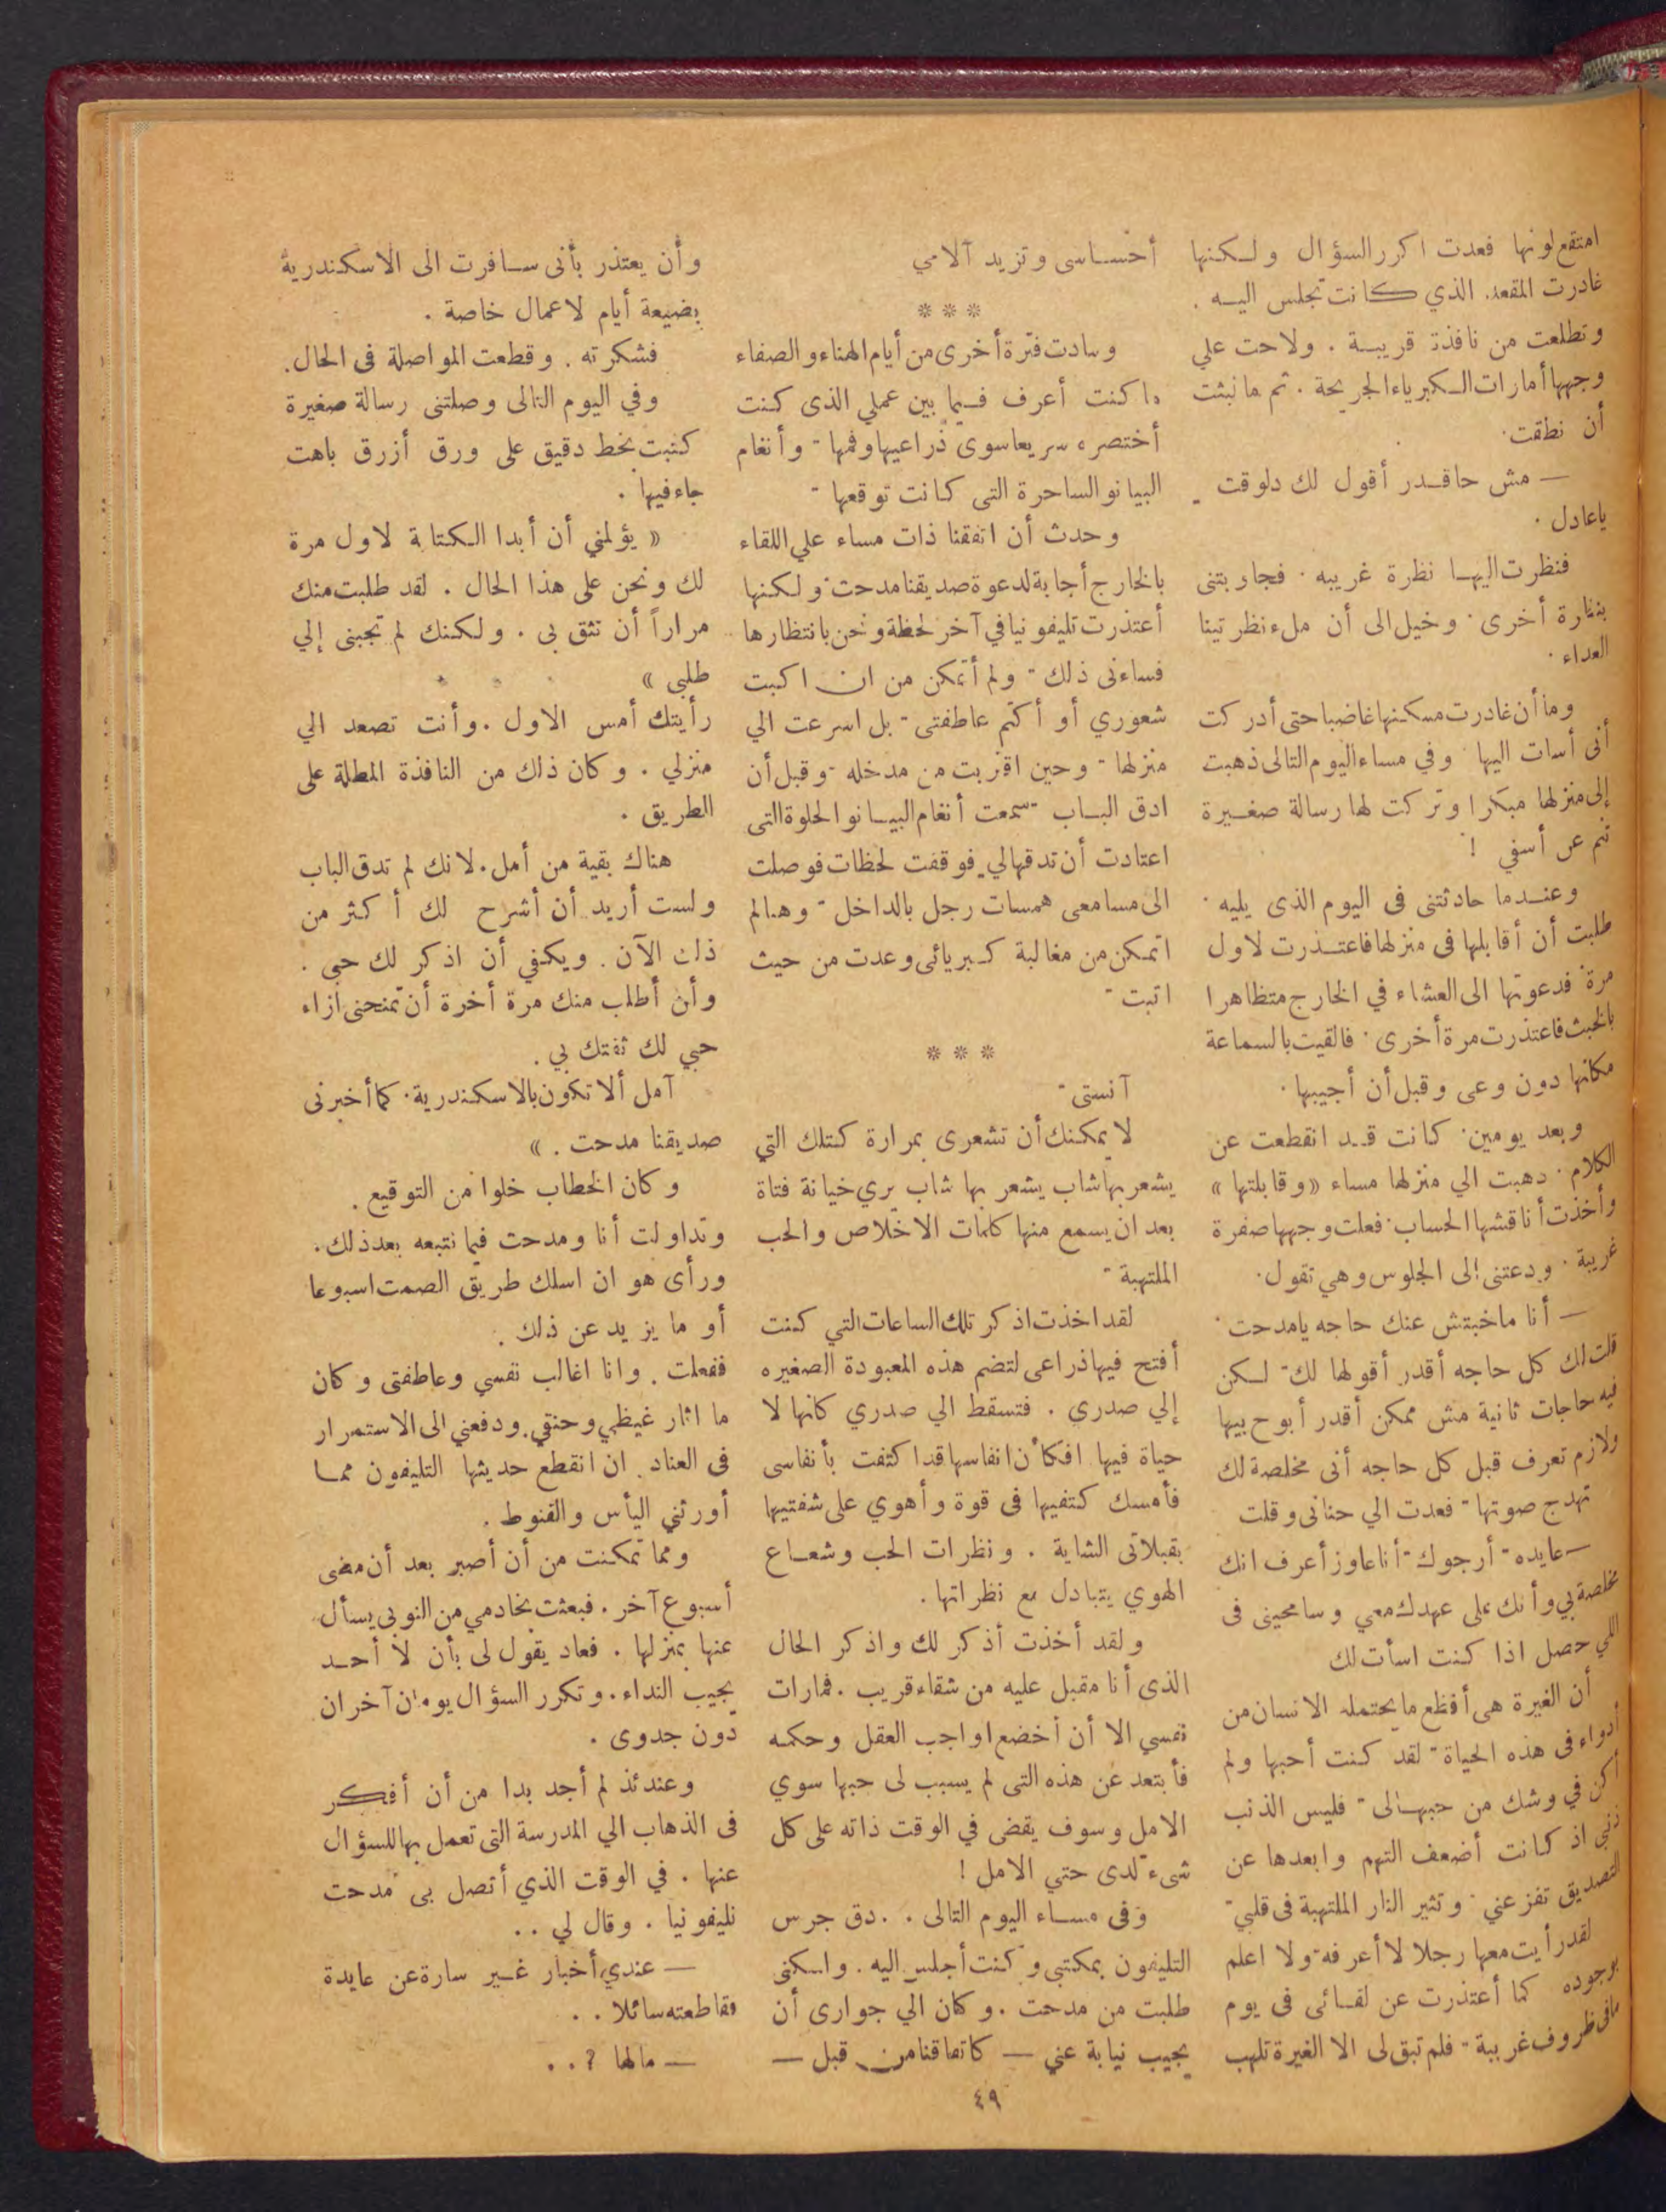 امتقع لونها فعدت اكرر السؤال ولكنها
غادرت المقعد. الذي كانت تجلس اليه .
وتطلعت من نافذة قريبة . ولاحت علي
وجهها أمارات الكبرياء الجريحة . ثم مالبثت
أن نطقت.
— مش حاقدر أقول لك دلوقت
ياعادل .
فنظرت اليها نظرة غريبه . فجاوبتنى
بنظرة أخرى . وخيل الى أن ملء نظرتينا
العداء .
وما أن غادرت مسكنها غاضبا حتى أدركت
أنى أسات اليها . وفي مساء اليوم التالى ذهبت
إلى منزلها مبكرا وتركت لها رسالة صغيرة
تنم عن أسفي !
وعندما حادثتنى فى اليوم الذى يليه .
طلبت أن أقابلها فى منزلها فاعتذرت لاول
مرة . فدعوتها الى العشاء في الخارج متظاهرا
بالخبث فاعتذرت مرة أخرى . فالقيت بالسماعة
مكانها دون وعى وقبل أن أجيبها .
وبعد يومين . كانت قد انقطعت عن
الكلام . دهبت الي منزلها مساء «وقابلتها»
وأخذت أناقشها الحساب . فعلت وجهها صفرة
غريبة . ودعتنى إلى الجلوس وهي تقول .
— أنا ماخبتش عنك حاجه يامدحت .
قلت لك كل حاجه أقدر أقولها لك - لكن
فيه حاجات ثانية مش ممكن أقدر أبوح بيها
ولازم تعرف قبل كل حاجه أنى مخلصة لك
تهدج صوتها - فعدت الي حنانى وقلت
— عايده - أرجوك - أنا عاوز أعرف انك
مخلصة بي وأنك على عهدك معي وسامحينى فى
اللي حصل اذا كنت اسأت لك
أن الغيرة هى أفظع مايحتمله الانسان من
أدواء فى هذه الحياة - لقد كنت أحبها ولم
أكن في وشك من حبها لى - فليس الذنب
ذنبى اذ كانت أضعف التهم وابعدها عن
التصديق تفزعني . وتثير النار الملتهبة فى قلبي -
لقد رأيت معها رجلا لا أعرفه - ولا اعلم
بوجوده كما أعتذرت عن لقائى فى يوم
مافى ظروف غريبة - فلم تبق لى الا الغيرة تلهب
أحساسى وتزيد آلامي
***
وسادت فترة أخرى من أيام الهناء والصفاء
ما كنت أعرف فيما بين عملي الذى كنت
أختصره سريعا سوى ذراعيها وفمها - وأنغام
البيانو الساحرة التى كانت توقعها -
وحدث أن اتفقنا ذات مساء علي اللقاء
بالخارج أجابة لدعوة صديقنا مدحت - ولكنها
أعتذرت تليفونيا في آخر لحظة ونحن بانتظارها
فساءنى ذلك - ولم أتمكن من ان اكبت
شعوري أو أكتم عاطفتى - بل اسرعت الي
منزلها - وحين اقتربت من مدخله - وقبل أن
ادق الباب - سمعت أنغام البيانو الحلوة التى
اعتادت أن تدقها لي . فوقفت لحظات فوصلت
الى مسامعى همسات رجل بالداخل - وهالم
اتمكن من مغالبة كبريائى وعدت من حيث
اتيت -
***
آنستى -
لا يمكنك أن تشعرى بمرارة كتلك التي
يشعر بها شاب يشعر بها شاب يري خيانة فتاة
بعد ان يسمع منها كلمات الاخلاص والحب
الملتهبة -
لقد اخذت اذكر تلك الساعات التي كنت
أفتح فيها ذراعى لتضم هذه المعبودة الصغيره
إلي صدري . فتسقط الي صدري كانها لا
حياة فيها . افكأن انفاسها قد اكتفت بأنفاسى
فأمسك كتفيها فى قوة وأهوي على شفتيها
بقبلاتى الشابة . ونظرات الحب وشعاع
الهوي يتبادل مع نظراتها .
ولقد أخذت أذكر لك واذكر الحال
الذى أنا مقبل عليه من شقاء قريب . فمارات
نفسي الا أن أخضع لواجب العقل وحكمه
فأبتعد عن هذه التى لم يسبب لى حبها سوي
الامل وسوف يقضى في الوقت ذاته على كل
شىء لدى حتي الامل !
وفى مساء اليوم التالى . . دق جرس
التليفون بمكتبى وكنت أجلس اليه . ولكنى
طلبت من مدحت . وكان الي جوارى أن
يجيب نيابة عني — كاتفاقنا من قبل —
وأن يعتذر بأنى سافرت الى الاسكندرية
بضيعة أيام لاعمال خاصة .
فشكرته . وقطعت المواصلة فى الحال .
وفي اليوم التالى وصلتنى رسالة صغيرة
كتبت بخط دقيق على ورق أزرق باهت
جاء فيها .
« يؤلمني أن أبدا الكتابة لاول مرة
لك ونحن على هذا الحال . لقد طلبت منك
مراراً أن تثق بى . ولكنك لم تجبنى إلي
طلبي »
رأيتك أمس الاول . وأنت تصعد الي
منزلي . وكان ذلك من النافذة المطلة على
الطريق .
هناك بقية من أمل . لانك لم تدق الباب
ولست أريد أن أشرح لك أكثر من
ذلك الآن . ويكفي أن اذكر لك حبى .
وأن أطلب منك مرة أخرة أن تمنحنى ازاء
حبي لك ثقتك بي .
آمل ألا تكون بالاسكندرية . كما أخبرنى
صديقنا مدحت . »
وكان الخطاب خلوا من التوقيع .
وتداولت أنا ومدحت فيما نتبعه بعد ذلك .
ورأى هو ان اسلك طريق الصمت اسبوعا
أو ما يزيد عن ذلك .
ففعلت . وانا اغالب نفسي وعاطفتى وكان
ما اثار غيظي وحنقي . ودفعني الى الاستمرار
فى العناد . ان انقطع حديثها التليفون مما
أورثني اليأس والقنوط .
ومما تمكنت من أن أصبر بعد أن مضى
أسبوع آخر . فبعثت بخادمي من النوبى يسأل
عنها بمنزلها . فعاد يقول لى بأن لا أحد
يجيب النداء . وتكرر السؤال يومان آخران
دون جدوى .
وعندئذ لم أجد بدا من أن أفكر
فى الذهاب الي المدرسة التى تعمل بها للسؤال
عنها . في الوقت الذي أتصل بى مدحت
تليفونيا . وقال لي . .
— عندي أخبار غير سارة عن عايدة
فقاطعته سائلا . .
— مالها ? . .
٤٩